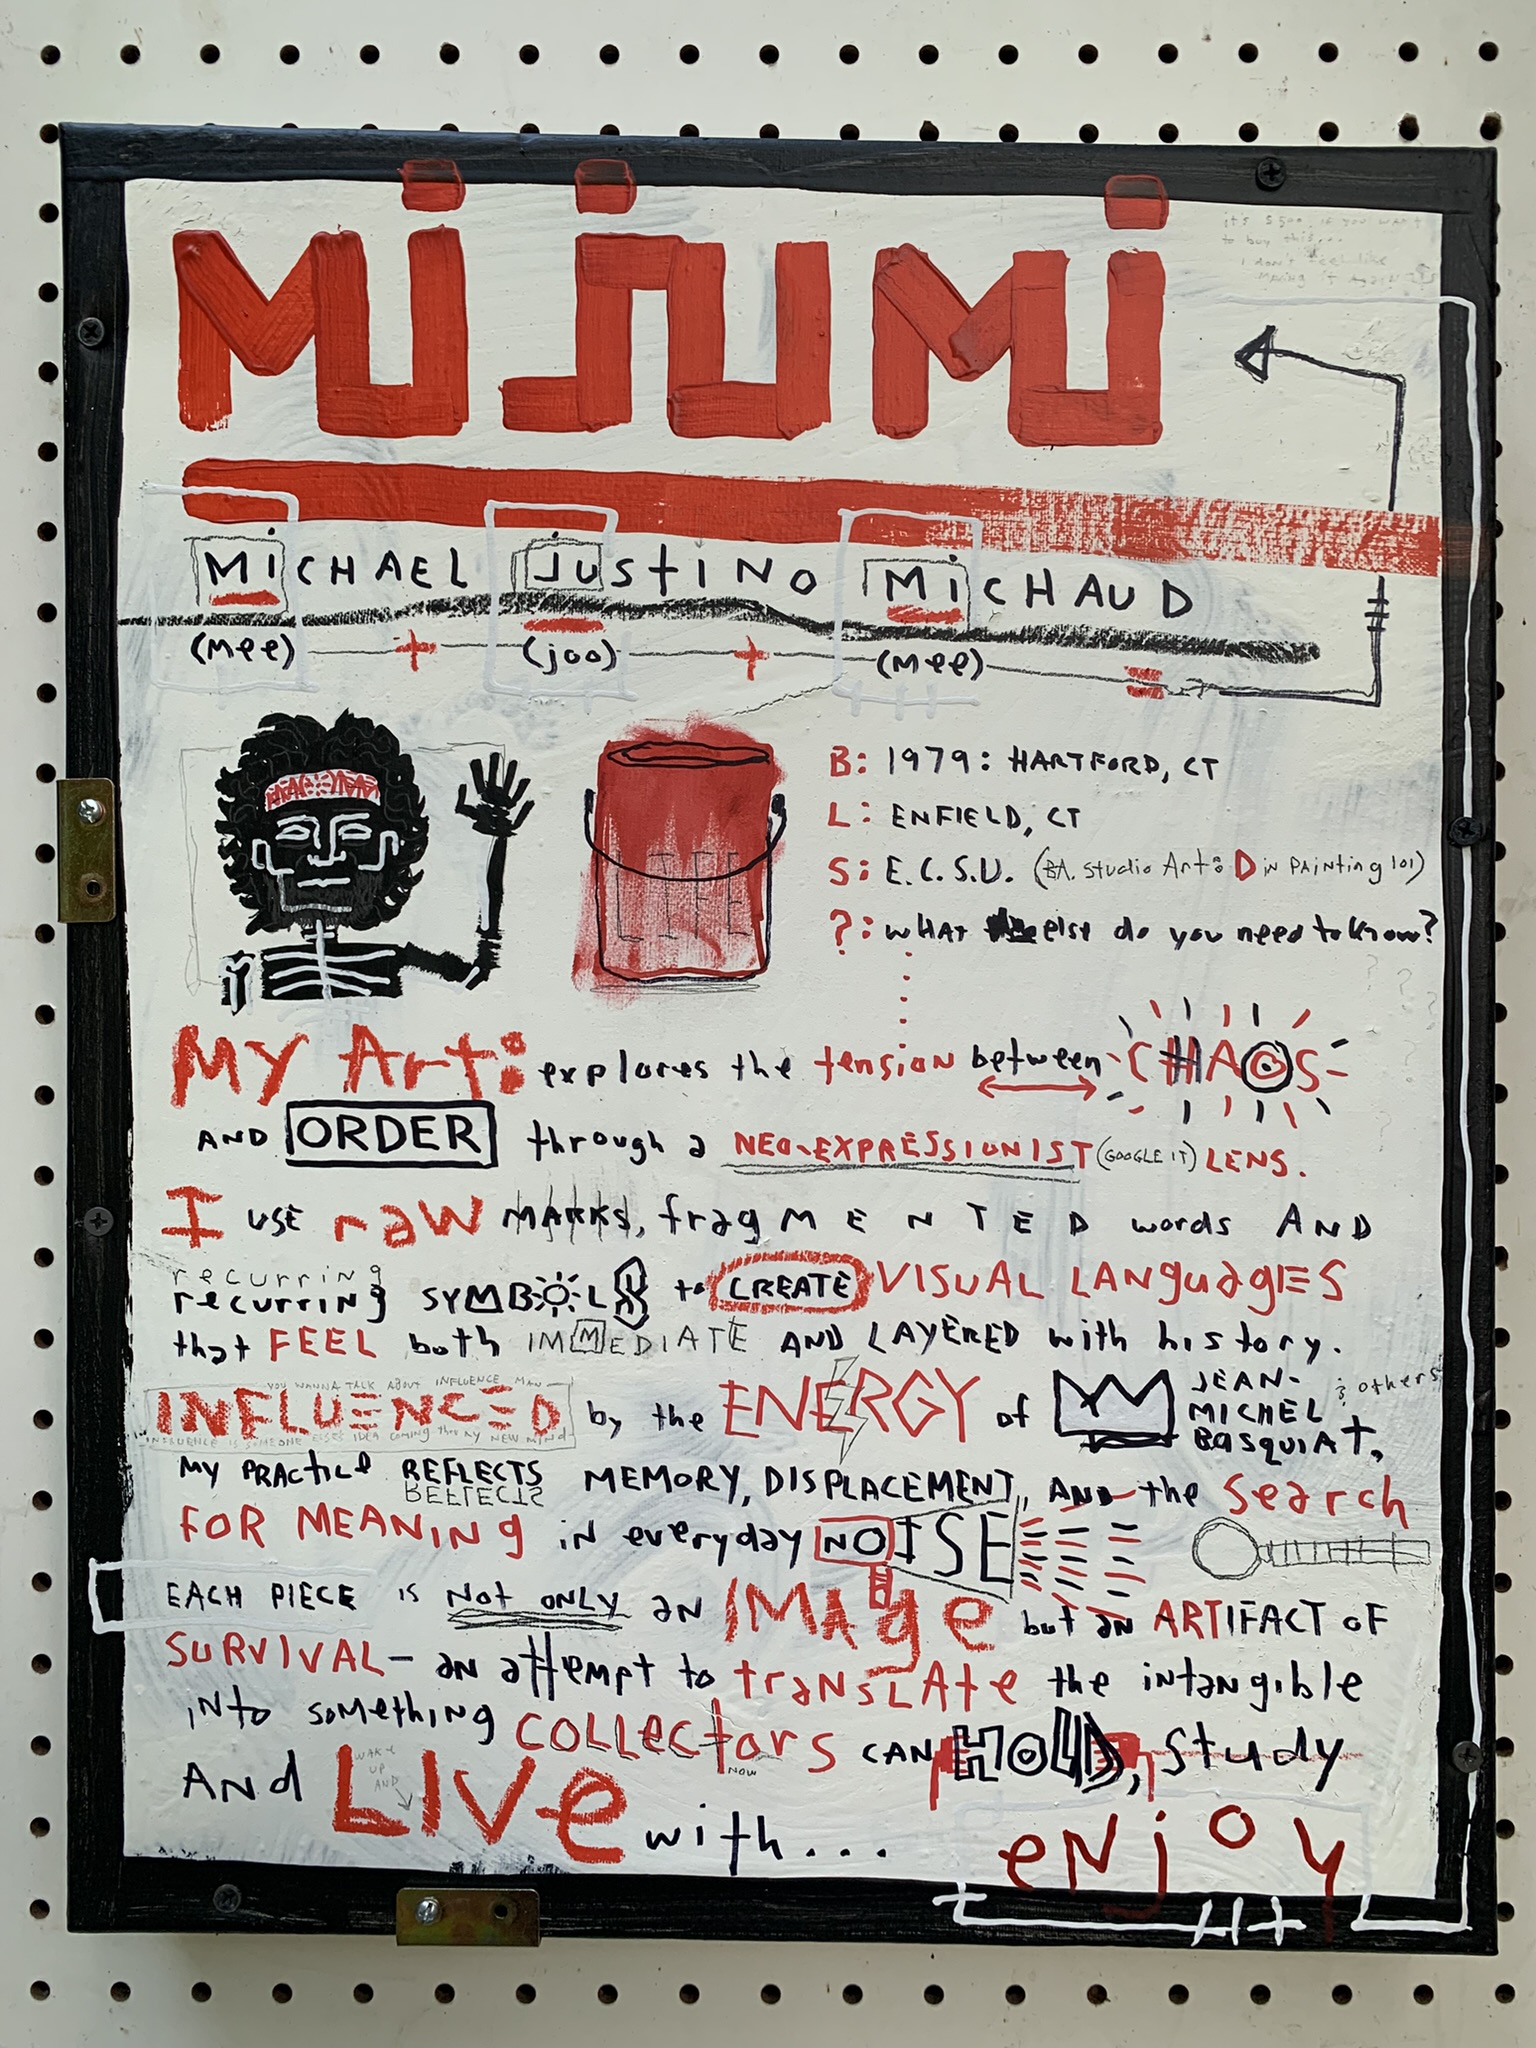 MijuMi
it's $500 if you want
to buy this...
I don't feel like
making it again
MiCHAEL JUStiNO MiCHAUD
(mee) + (joo) + (mee) =
LIFE
B: 1979: HARTFORD, CT
L: ENFIELD, CT
S: E.C.S.U. (BA. Studio Art: D in PAiNting 101)
?: wHAT else do you need to know?
? ? ? ?
MY Art: explores the tension between CHAOS
AND ORDER through a NEO-EXPRESSIONIST (GOOGLE IT) LENS.
I USE raW MARKS, fragMENTED words AND
recurring
recurring SYMBOLS to CREATE VISUAL LANguagES
that FEEL both IMMEDIATE AND LAYERED with history.
YOU WANNA TALK ABOUT INFLUENCE MAN
INFLUENCED by the ENERGY of JEAN-MICHEL BASQUIAT, & others
INFLUENCE IS SOMEONE ELSES IDEA COMING THRU MY NEW MIND
MY PRACticE REFLECTS MEMORY, DISPLACEMENT, AND the Search
REFLECTS
FOR MEANING in everyday NOISE
EACH PIECE is Not ONLY an IMAge but an ARTIFACT OF
SURVIVAL- an attempt to tranSLAte the intangible
iNto something COLLECtorS CAN HOLD, Study
NOW
WAKE
UP
AND
ANd LIVe with...
eNjoy